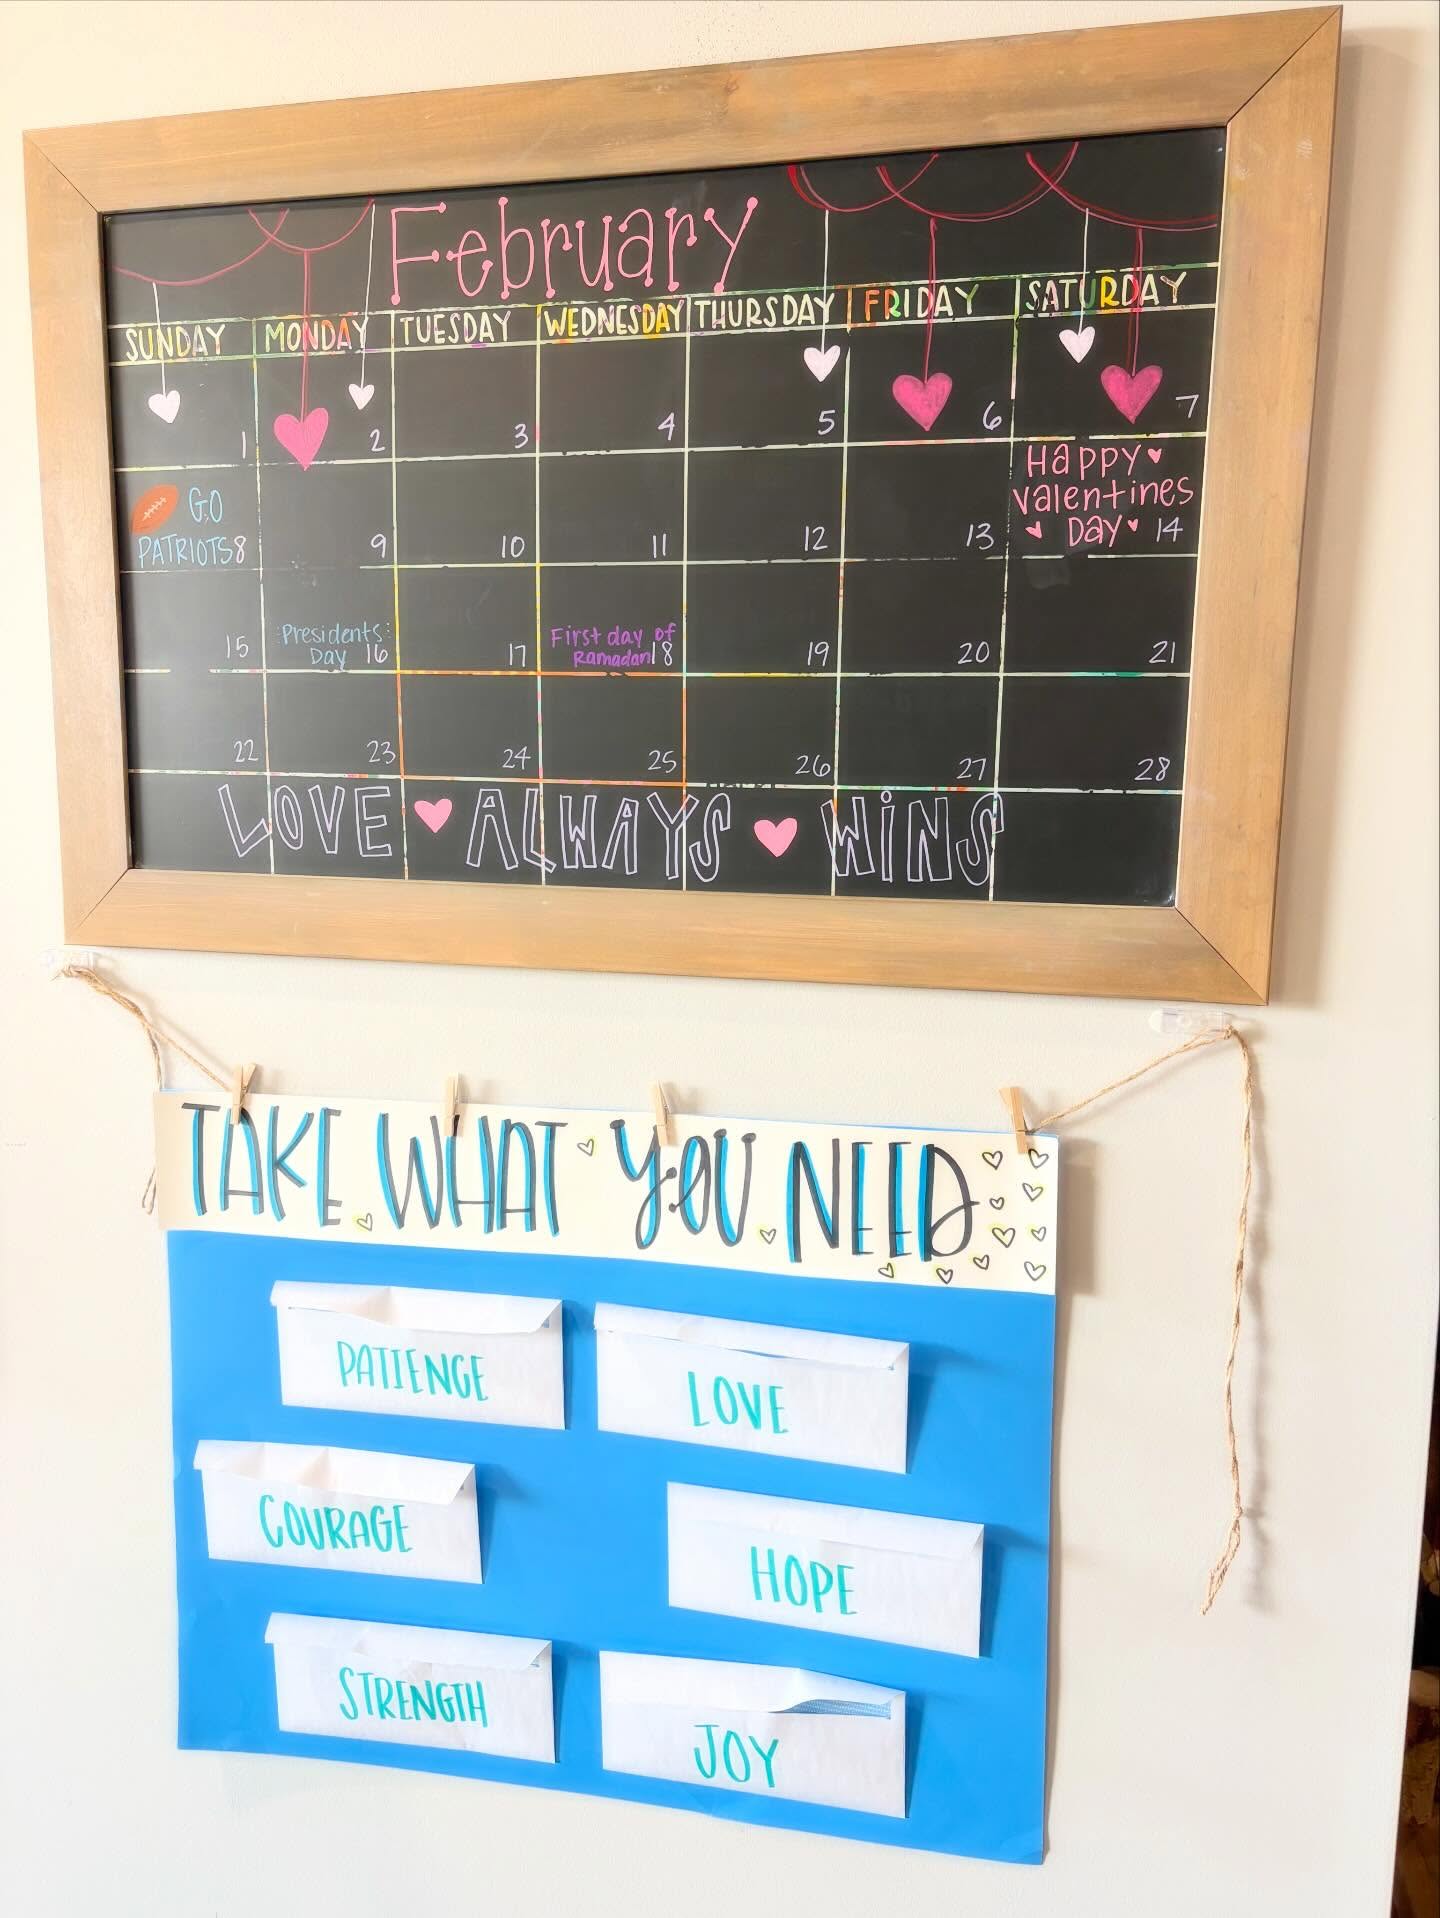 February
SUNDAY MONDAY TUESDAY WEDNESDAY THURSDAY FRIDAY SATURDAY
1 2 3 4 5 6 7
GO
PATRIOTS 8
9 10 11 12 13
Happy
Valentines
Day 14
15
Presidents
Day 16
17
First day of
Ramadan 18
19 20 21
22 23 24 25 26 27 28
LOVE ALWAYS WiNS
TAKE WHAT YOU NEED
PATIENCE LOVE
COURAGE HOPE
STRENGTH JOY